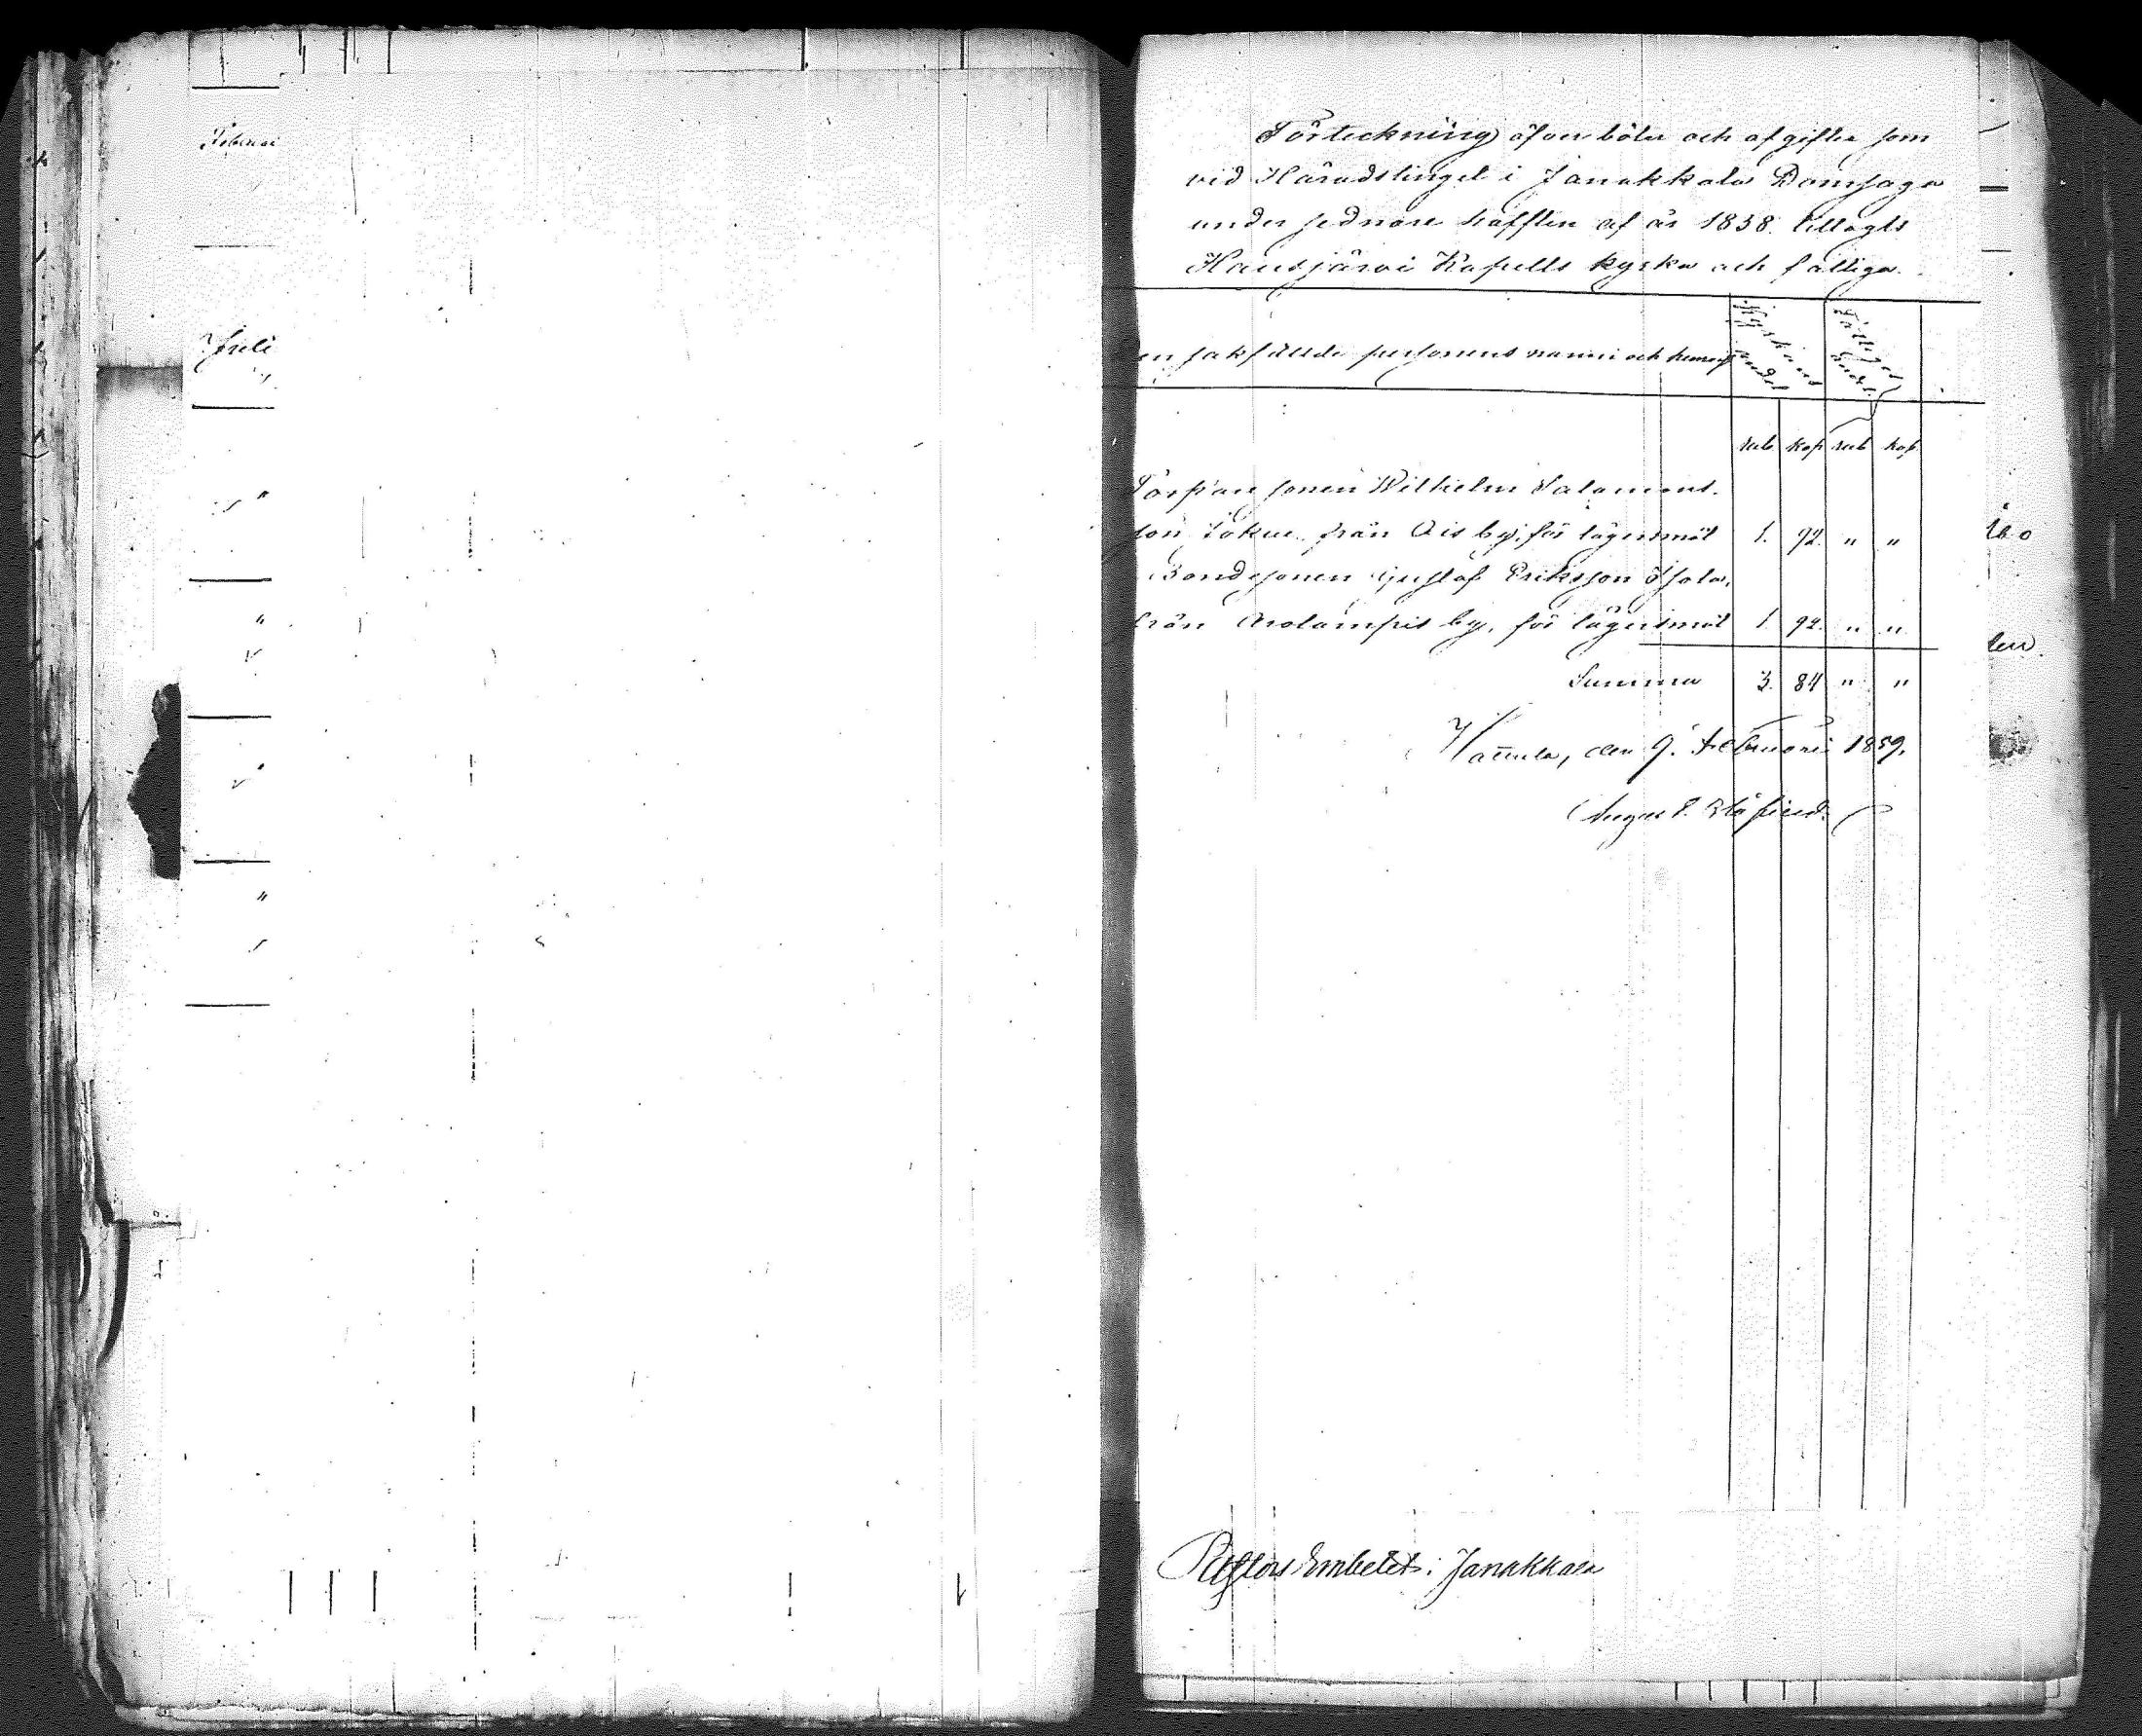 Februari
Juli
Förteckning öfver böter och afgifter som
vid Häradstinget i Janakkala Domsaga
under sednare hälften af år 1858. tillagts
Hausjärvi Kapells kyrka och fattiga.
en sakfällda personens namn och hemvist
Kyrkans andel
Fattiges andel
rub kop rub kop
Torpare sonen Wilhelm Salomons-
son Jokue från Ois by, för lägersmål 1. 92. " "
Bondesonen Gustaf Eriksson Isola,
från Arolampis by, för lägersmål 1. 92. " "
Summa 3. 84 " "
den 9. Februarii 1859.
August
Pastors Embetet i Janakkala